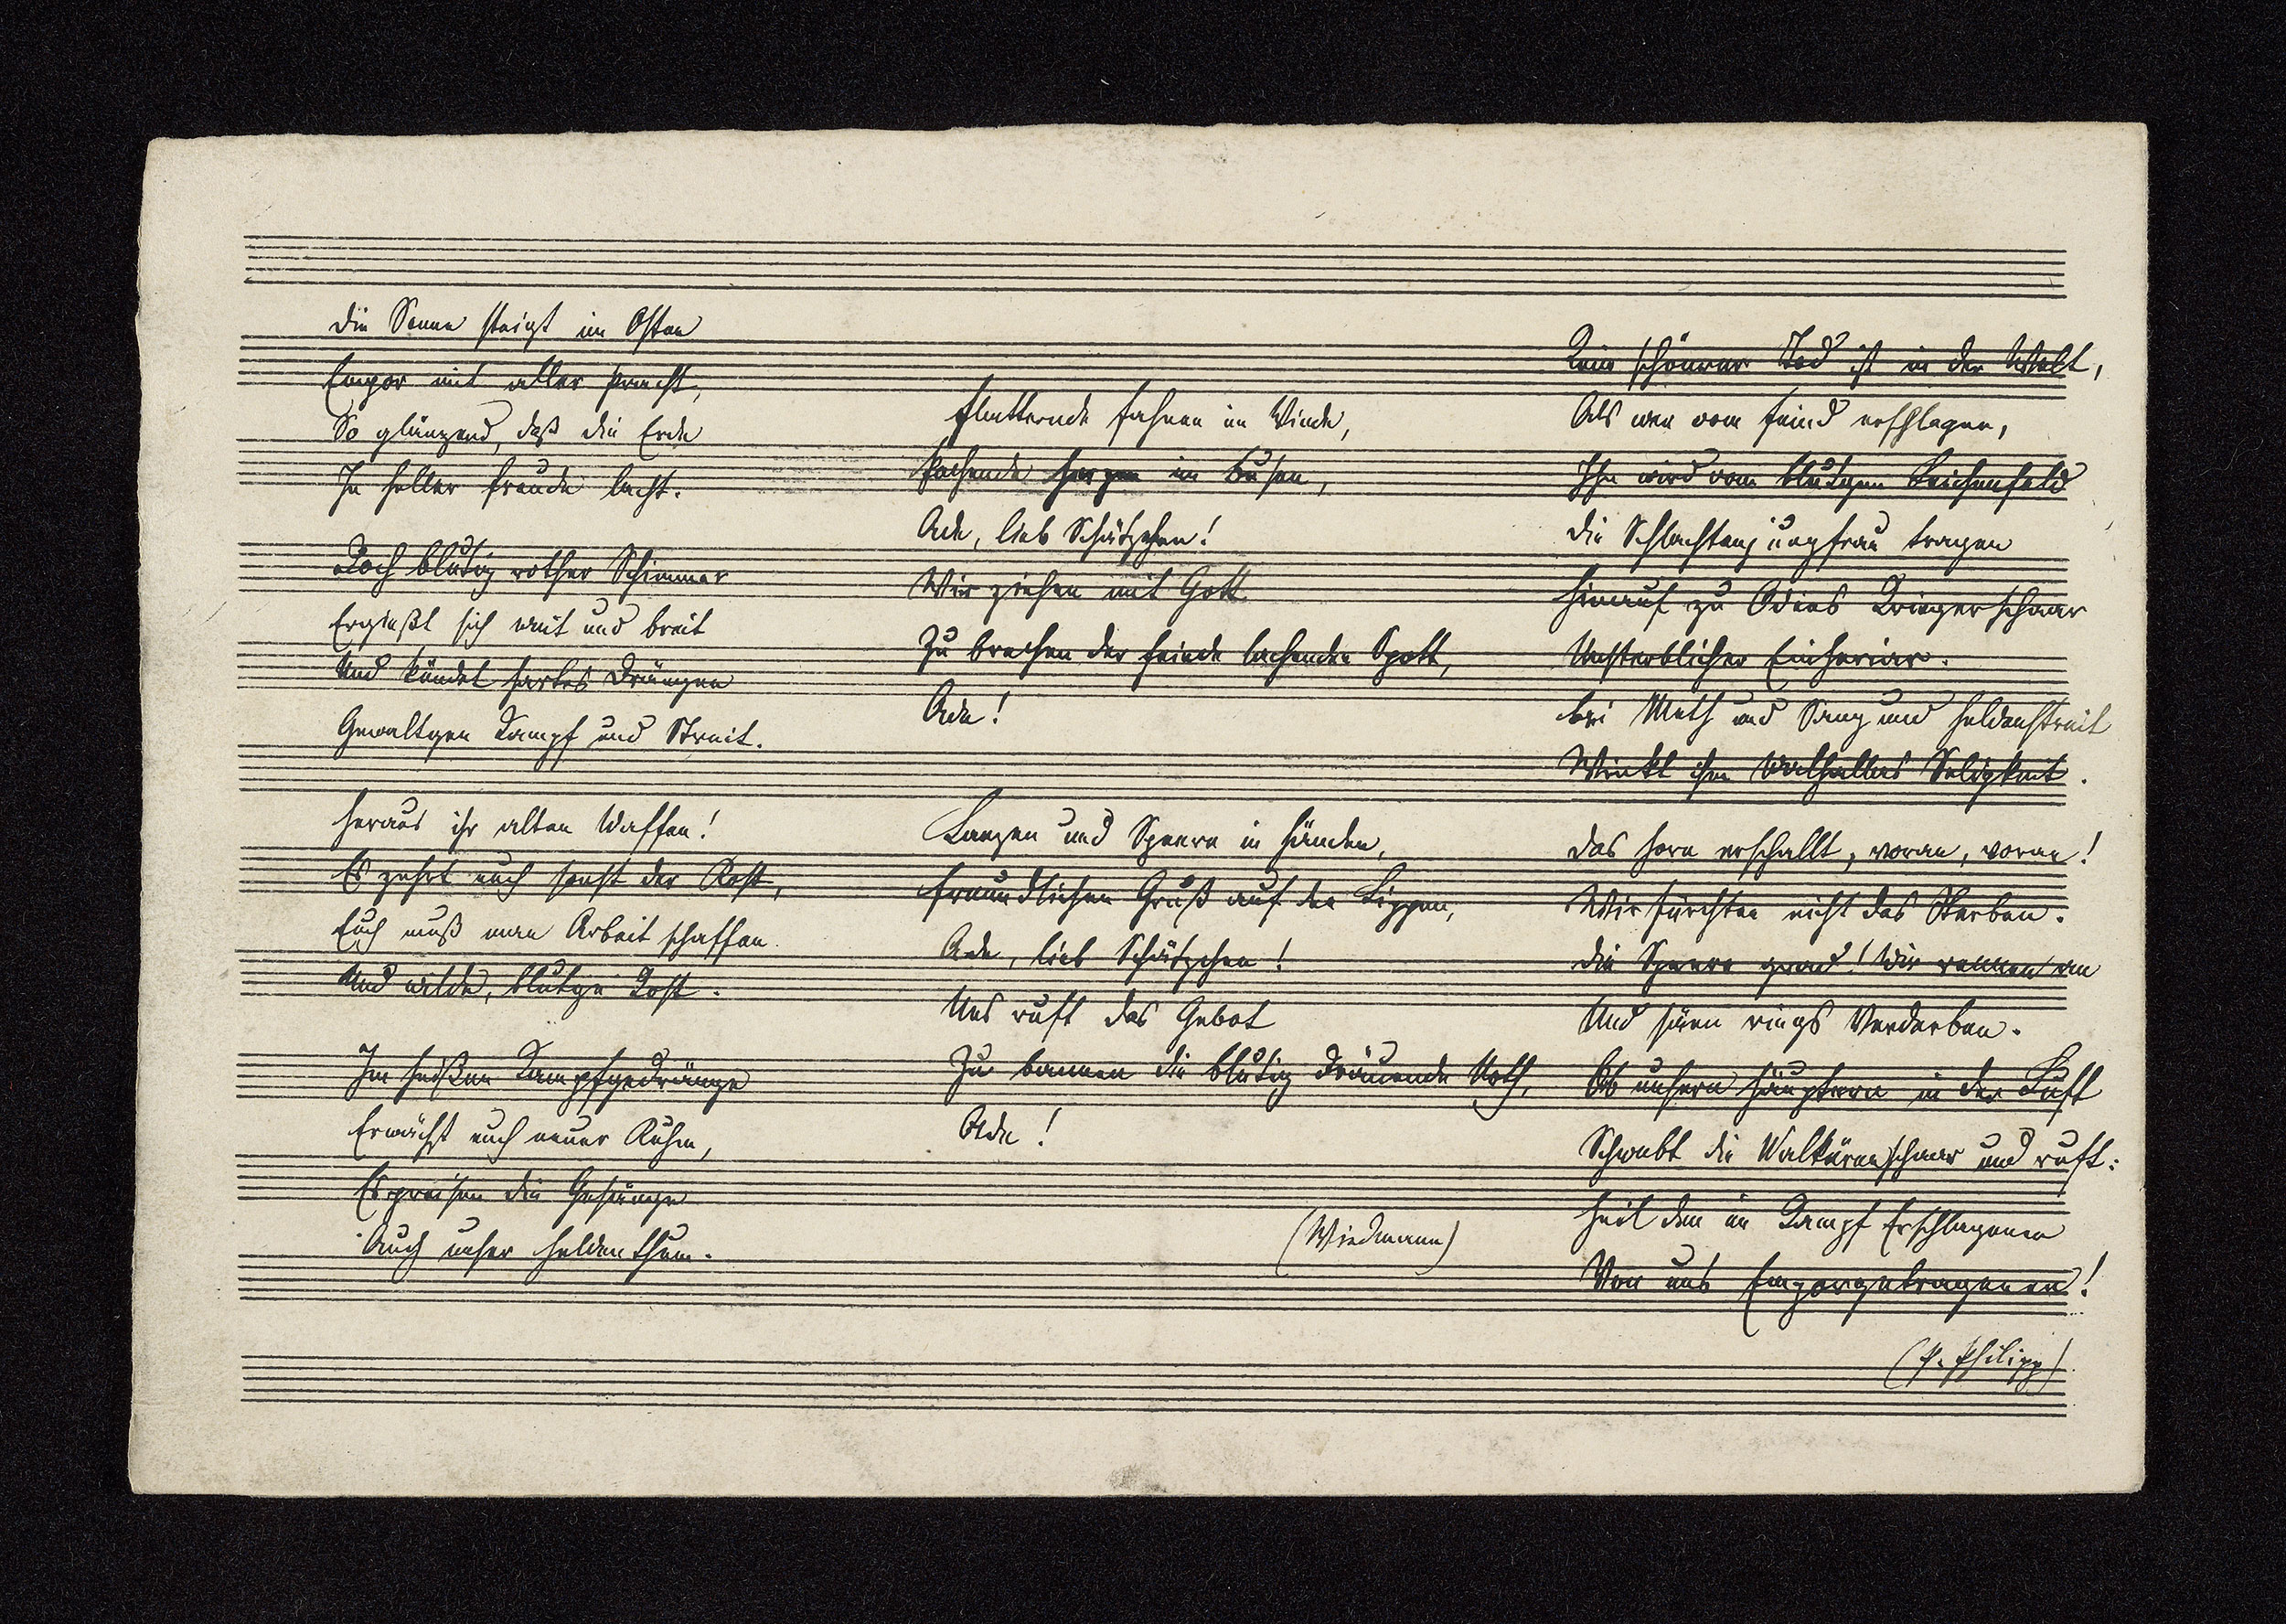 Die Sonne steigt im Osten
Empor mit aller Pracht,
So glänzend, daß die Erde
In heller Freude lacht.
Doch blutig rother Schimmer
Ergießt sich weit und breit
Und kündet hartes Drängen
Gewaltgen Kampf und Streit.
Heraus ihr alten Waffen!
Es zehrt euch sonst der Rost,
Euch muß man Arbeit schaffen
Und wilde, blutge Kost.
Im heißen Kampfgedränge
Erwächst euch neuer Ruhm,
Es preisen die Gesänge
Auch unser Heldenthum.
Flatternde Fahnen im Winde,
Pochende Herzen im Busen,
Ade, lieb Schätzchen!
Wir ziehen mit Gott
Zu brechen der Feinde lachenden Spott,
Ade!
Lanzen und Speere in Händen,
Freundlichen Gruß auf den Lippen,
Ade, lieb Schätzchen!
Uns ruft das Gebot
Zu bannen die blutig dräuende Noth,
Ade!
(Wiedmann)
Kein schönrer Tod ist in der Welt,
Als wer vom Feind erschlagen,
Ihn wird vom blutgen Leichenfeld
Die Schlachtenjungfrau tragen
Hinauf zu Odins Kriegerschaar
Unsterblicher Einheriar.
Bei Meth und Sang und Heldenstreit
Winkt ihm Walhallas Seligkeit.
Das Horn erschallt, voran, voran!
Wir fürchten nicht das Sterben.
Die Speere grad! Wir rennen an
Und säen rings Verderben.
Ob unsern Häuptern in der Luft
Schwebt die Walkürenschaar und ruft:
Heil den im Kampf Erschlagenen
Von uns Emporgetragenen!
(P. Philipp)